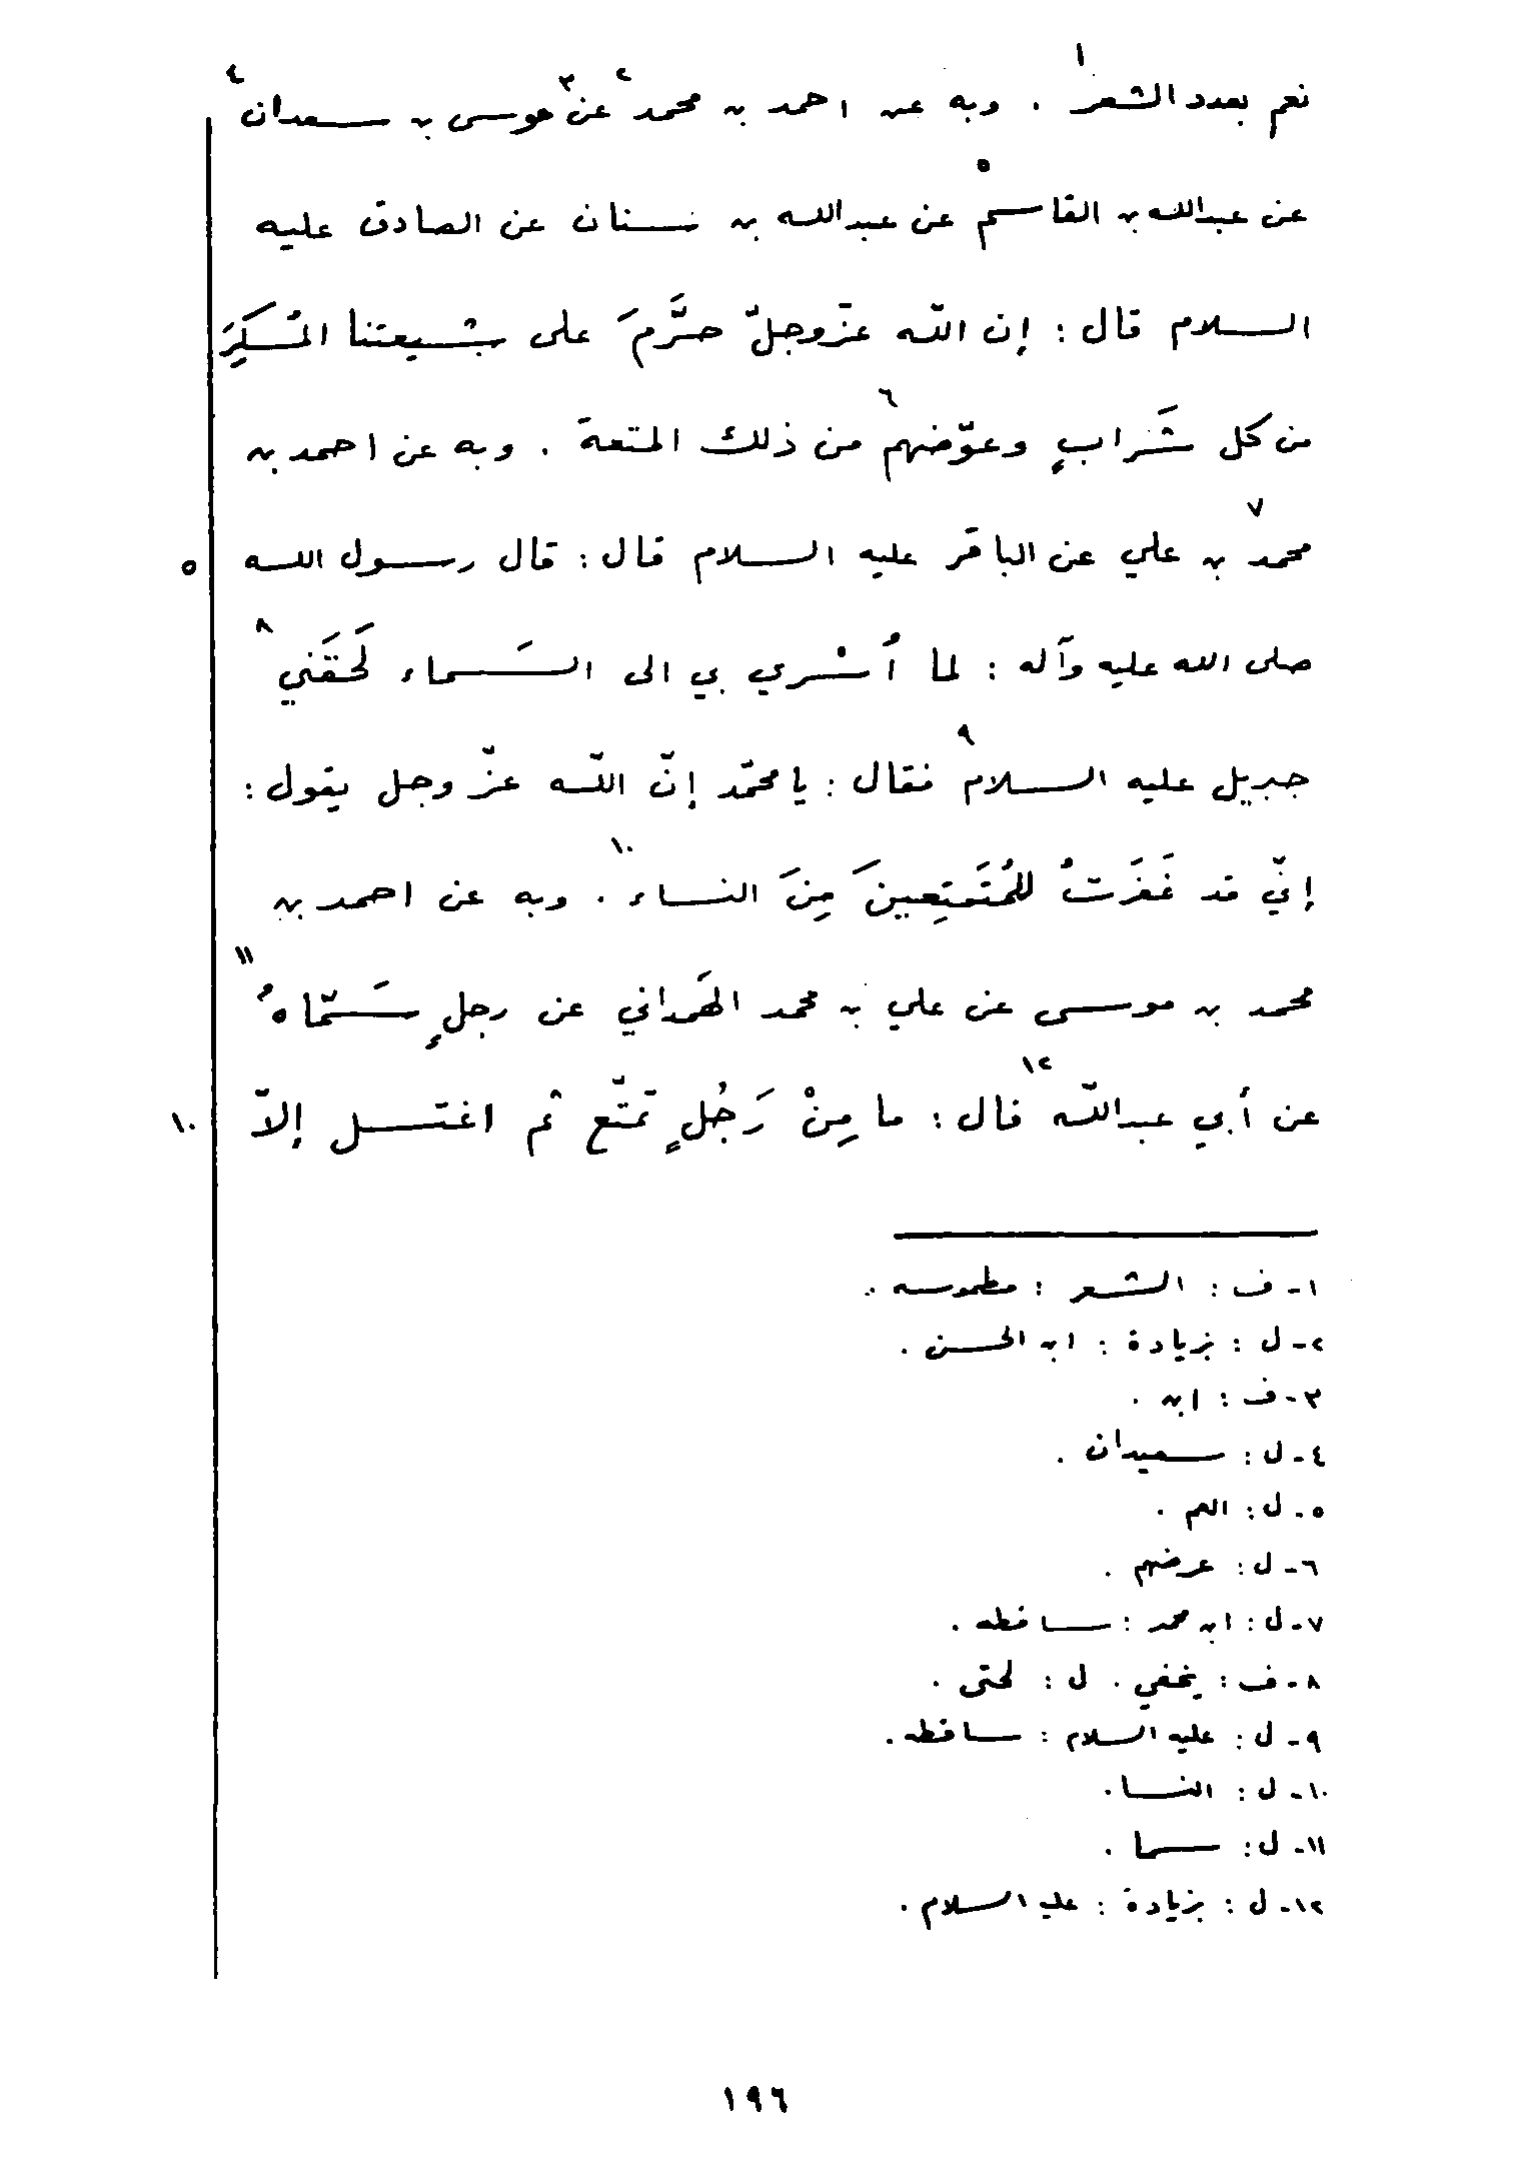 نعم بعدد الشعر١ . وبه عن احمد بن محمد٢ عن٣ موسى بن سعدان٤
عن عبدالله بن القاسم٥ عن عبدالله بن سنان عن الصادق عليه
السلام قال : إن اللّه عزّوجلّ حرَّمَ على شيعتنا المُسكِرَ
من كل شَرابٍ وعوّضهم٦ من ذلك المتعة . وبه عن احمد بن
محمد٧ بن علي عن الباقر عليه السلام قال : قال رسول الله
٥
صلى الله عليه وآله : لما أُسْري بي الى السَماء لَحقَني٨
جبريل عليه السلام٩ فقال : يا محمّد إنّ اللّه عزّ وجل يقول :
إنّي قد غَفَرتُ للمُتَمتِعينَ مِنَ النساء١٠ . وبه عن احمد بن
محمد بن موسى عن علي بن محمد الهَمداني عن رجلٍ سَمّاهُ١١
عن أبي عبداللّه١٢ قال : ما مِنْ رَجُلٍ تمتّع ثم اغتسل إلاّ
١٠
١- ف : الشعر : مطموسه .
٢- ل : بزيادة : ابن الحسن .
٣- ف : ابن .
٤- ل : سعيدان .
٥- ل : العم .
٦- ل : عرضهم .
٧- ل : ابن محمد : ساقطه .
٨- ف : يخفي . ل : لحتى .
٩- ل : عليه السلام : ساقطه .
١٠- ل : النسا .
١١- ل : سما .
١٢- ل : بزيادة : عليه السلام .
١٩٦